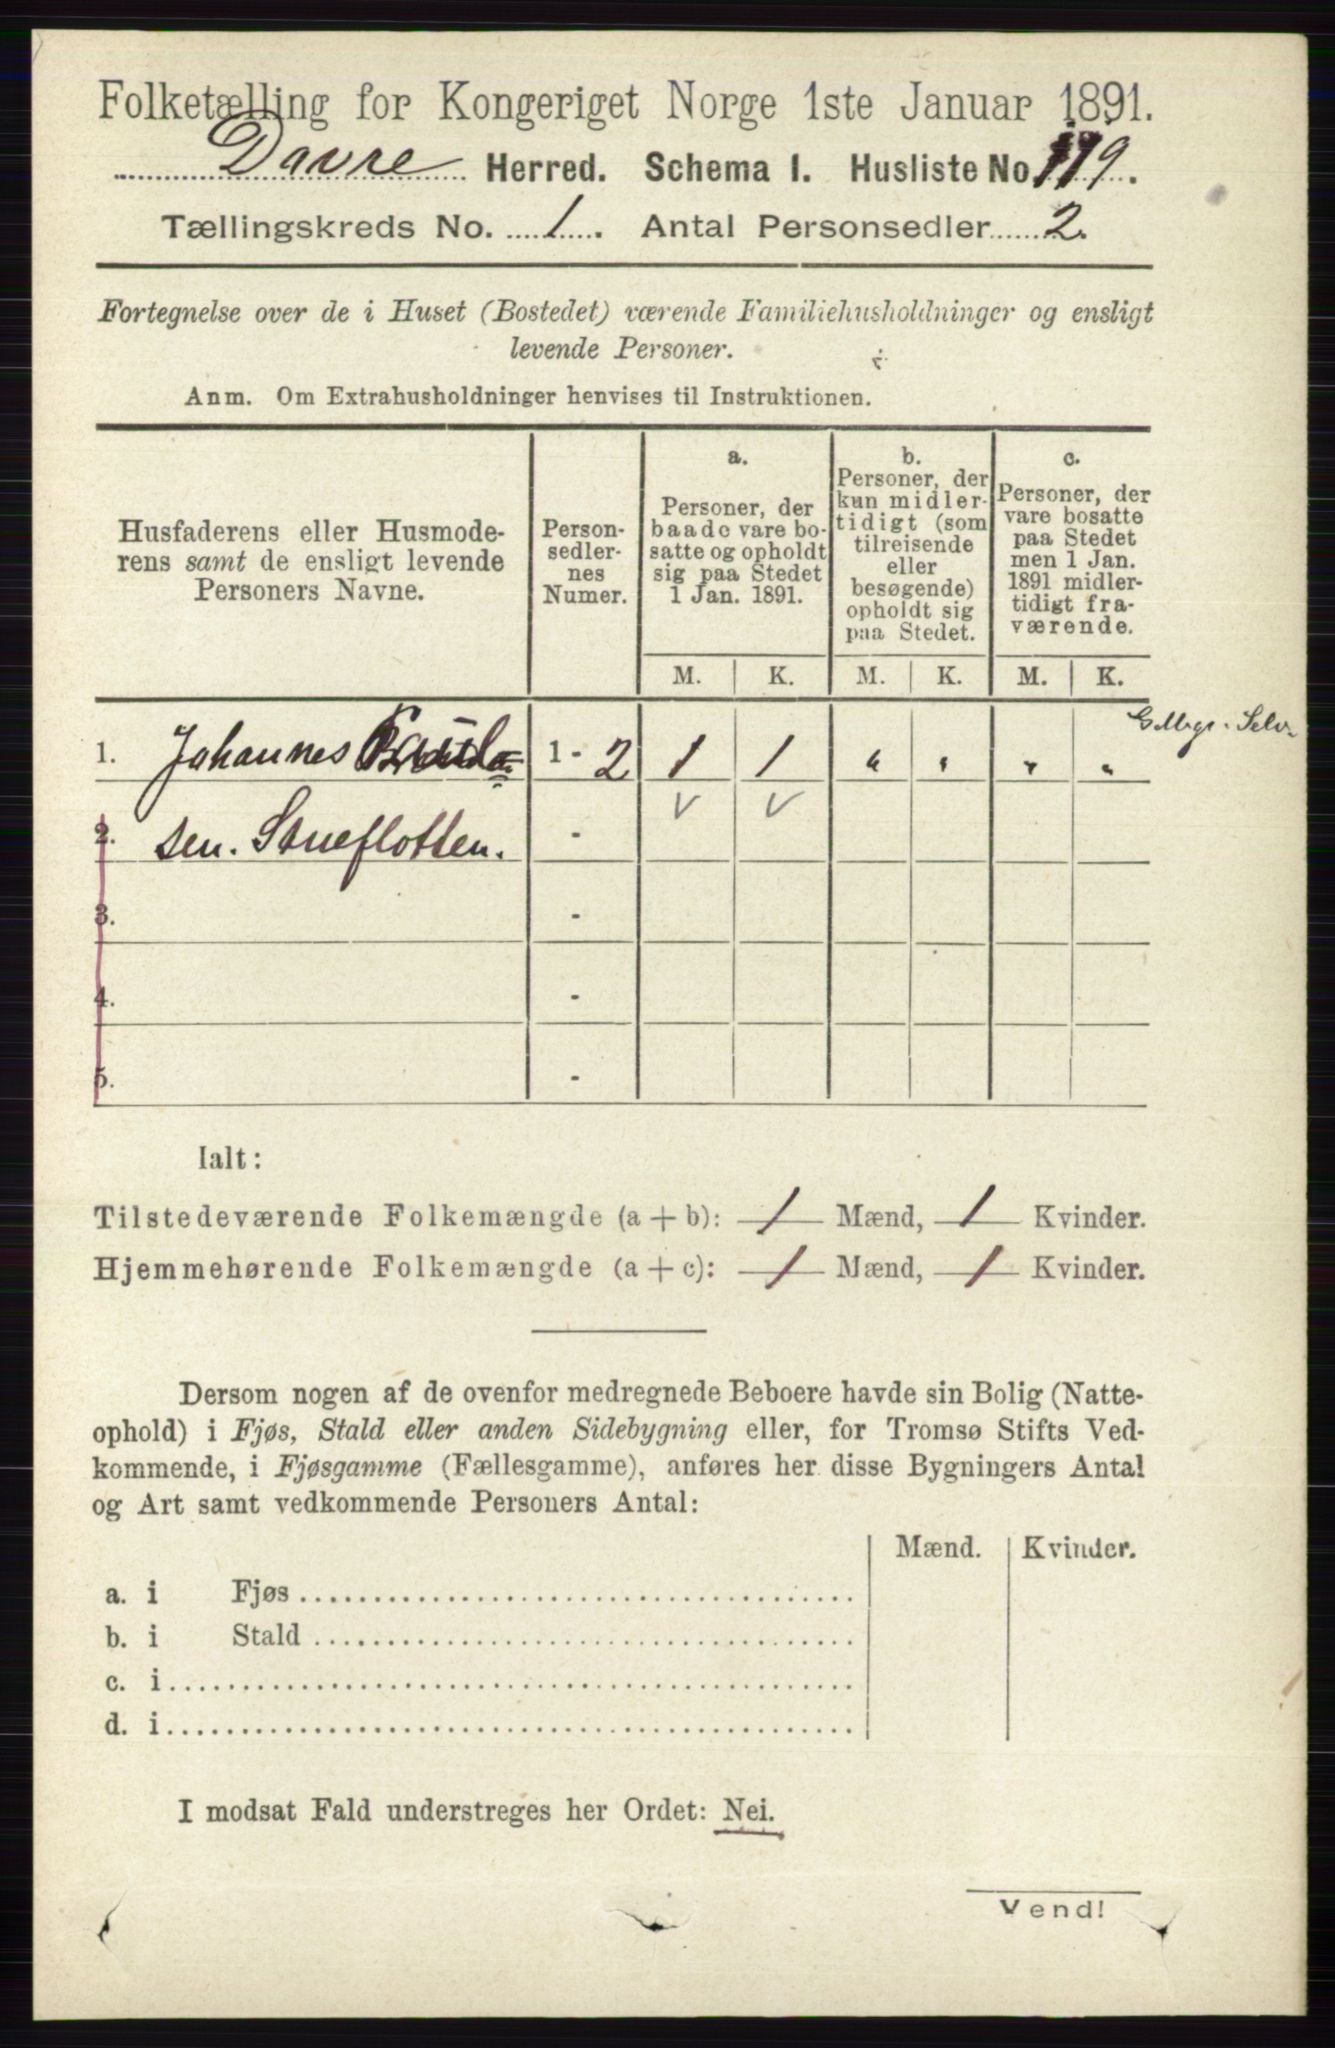 Folketælling for Kongeriget Norge 1ste Januar 1891.
Davre Herred. Schema I. Husliste No 119.
Tællingskreds No. 1. Antal Personsedler 2.
Fortegnelse over de i Huset (Bostedet) værende Familiehusholdninger og ensligt
levende Personer.
Anm. Om Extrahusholdninger henvises til Instruktionen.
Husfaderens eller Husmode-
rens samt de ensligt levende
Personers Navne.
Person-
sedler-
nes
Numer.
a.
Personer, der
baade vare bo-
satte og opholdt
sig paa Stedet
1 Jan. 1891.
b.
Personer, der
kun midler-
tidigt (som
tilreisende
eller
besøgende)
opholdt sig
paa Stedet.
c.
Personer, der
vare bosatte
paa Stedet
men 1 Jan.
1891 midler-
tidigt fra-
værende.
M. K. M. K. M. K.
1. Johannes 1 - 2 1 1 " " " "
2. sen. Stueflotten. -
3. -
4. -
5. -
Ialt:
Tilstedeværende Folkemængde (a + b): 1 Mænd, 1 Kvinder.
Hjemmehørende Folkemængde (a + c): 1 Mænd, 1 Kvinder.
Dersom nogen af de ovenfor medregnede Beboere havde sin Bolig (Natte-
ophold) i Fjøs, Stald eller anden Sidebygning eller, for Tromsø Stifts Ved-
kommende, i Fjøsgamme (Fællesgamme), anføres her disse Bygningers Antal
og Art samt vedkommende Personers Antal:
Mænd. Kvinder.
a. i Fjøs
b. i Stald
c. i
d. i
I modsat Fald understreges her Ordet: Nei.
Vend!